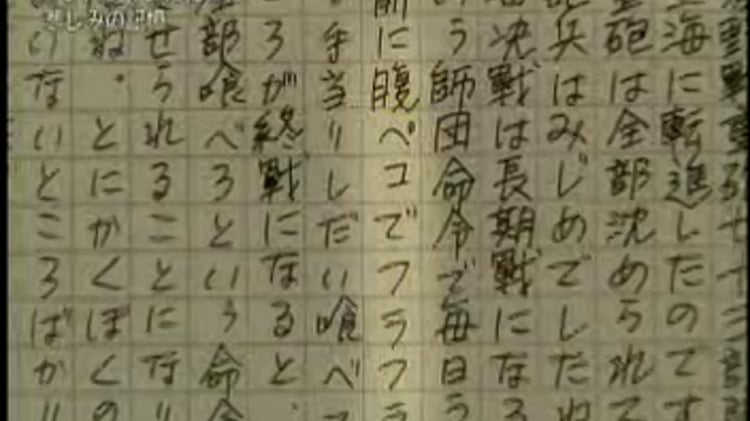 悲しみの記憶
海に転進したのです
砲は全部沈められて
兵はみじめでしたね
決戦は長期戦になる
う師団命令で毎日う
前に腹ペコでフラフラ
手当りしだい喰べ
ろが終戦になると、
部喰べろという命令
せうれることになり
ね。とにかくぼくの
けないところばかり